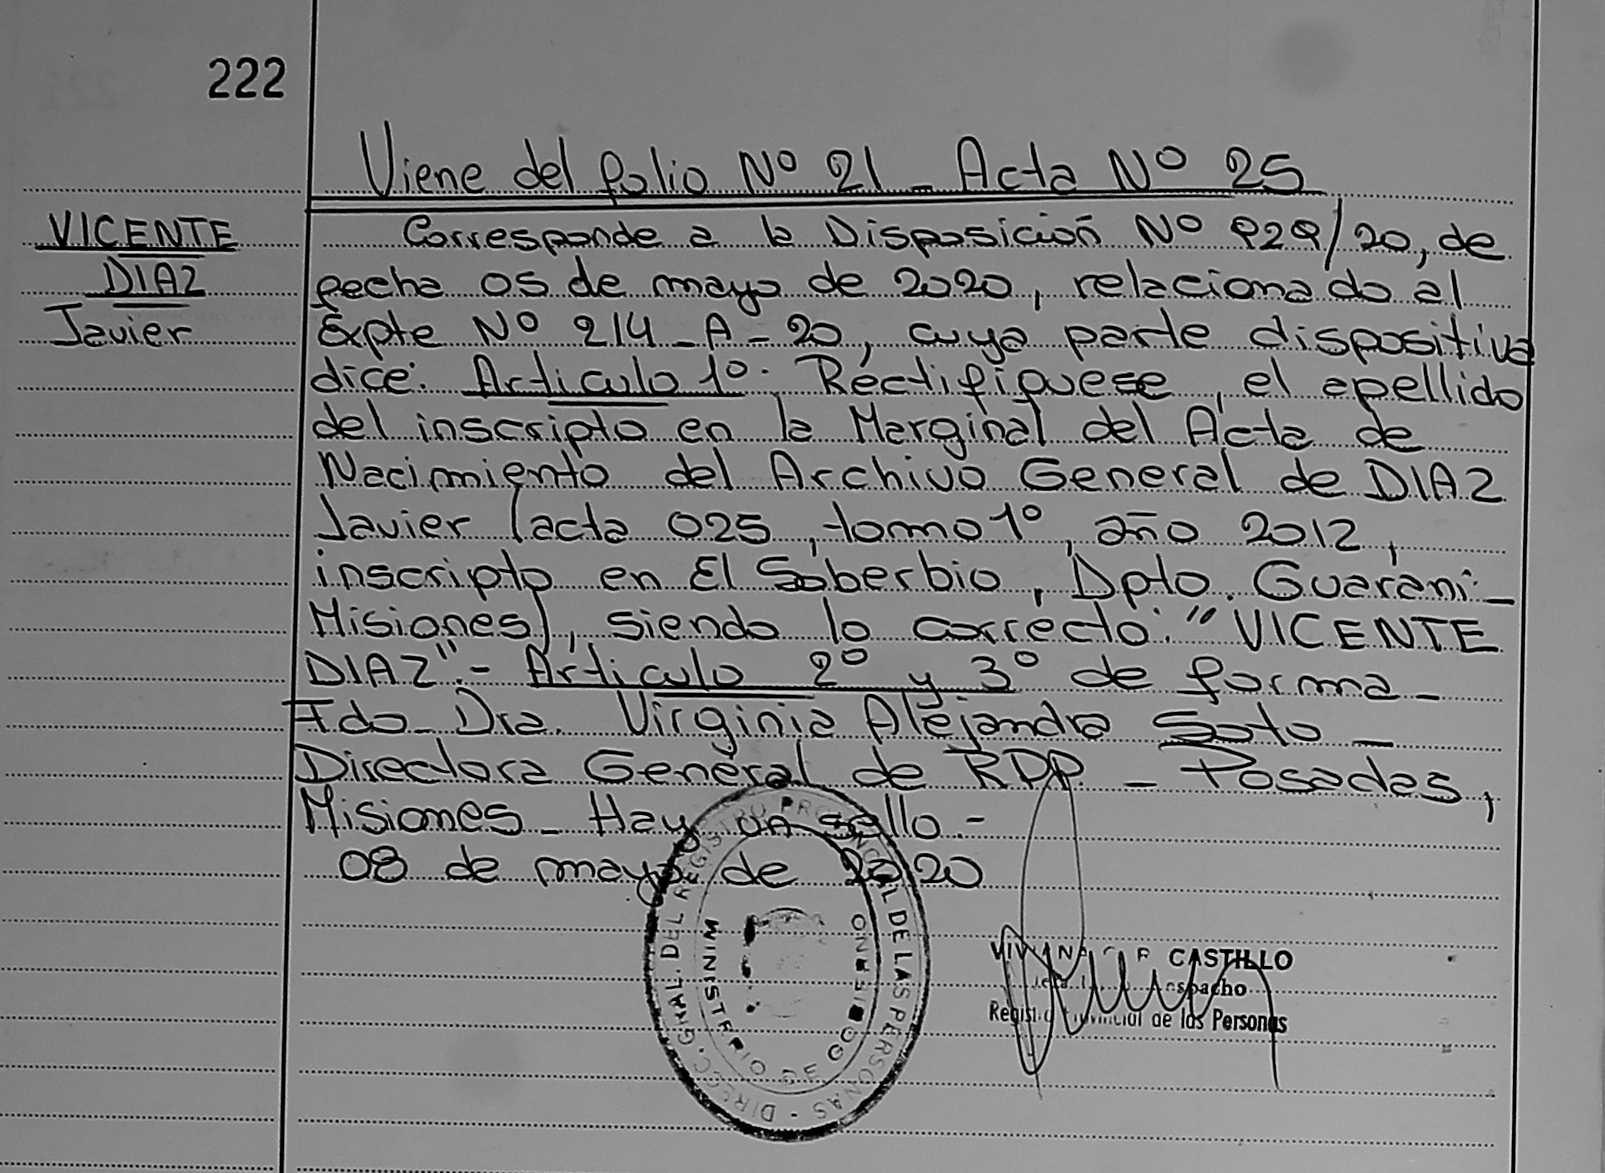 222
Viene del folio Nº 21 - Acta Nº 25
VICENTE
DIAZ
Javier
Corresponde a la Disposición Nº 929/20, de
fecha 05 de mayo de 2020, relacionado al
Expte Nº 214-A-20, cuya parte dispositiva
dice: Articulo 1º: Rectifíquese, el apellido
del inscripto en la Marginal del Acta de
Nacimiento del Archivo General de DIAZ
Javier (acta 025, tomo 1º, año 2012,
inscripto en El Soberbio, Dpto. Guaraní -
Misiones), siendo lo correcto: "VICENTE
DIAZ".- Articulo 2º y 3º de forma -
Fdo. Dra. Virginia Alejandra Soto -
Directora General de RPP - Posadas,
Misiones - Hay un sello.-
08 de mayo de 2020
DIRECC. GRAL. DEL REGISTRO PROVINCIAL DE LAS PERSONAS -
MINISTERIO DE GOBIERNO
CASTILLO
Despacho
Registro Provincial de las Personas